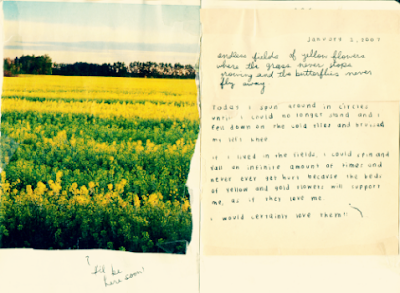 January 2, 2007
endless fields of yellow flowers
where the grass never stops
growing and the butterflies never
fly away
Today I spun around in circles
until I could no longer stand and I
fell down on the cold tiles and bruised
my left knee.
If I lived in the fields, I could spin and
fall an infinite amount of times and
never ever get hurt because the beds
of yellow and gold flowers will support
me, as if they love me.
I would certainly love them!!
I'll be
here soon!